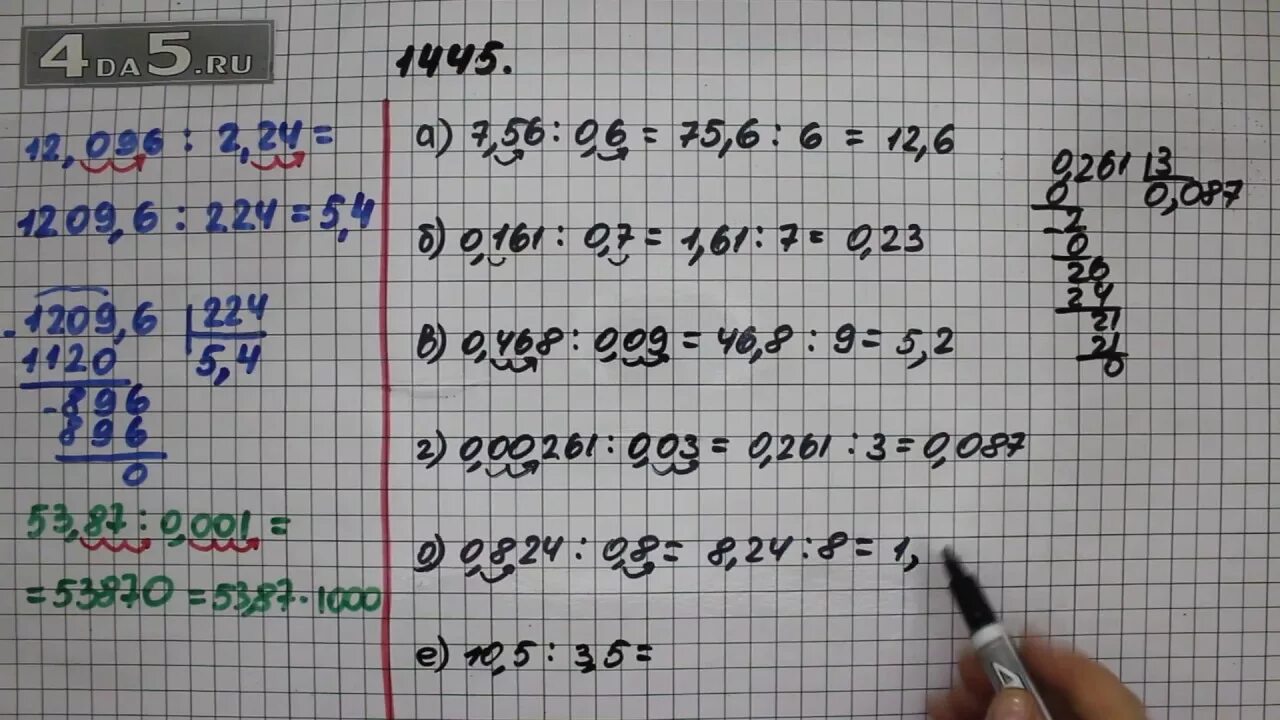 4DA5.RU
1445.
12,096 : 2,24 =
1209,6 : 224 = 5,4
- 1209,6 | 224
1120 5,4
- 896
896
0
53,87 : 0,001 =
= 53870 = 53,87 · 1000
а) 7,56 : 0,6 = 75,6 : 6 = 12,6
б) 0,161 : 0,7 = 1,61 : 7 = 0,23
в) 0,468 : 0,09 = 46,8 : 9 = 5,2
г) 0,00261 : 0,03 = 0,261 : 3 = 0,087
д) 0,824 : 0,8 = 8,24 : 8 = 1,
е) 10,5 : 3,5 =
0,261 | 3
0 0,087
- 2
0
26
24
21
21
0